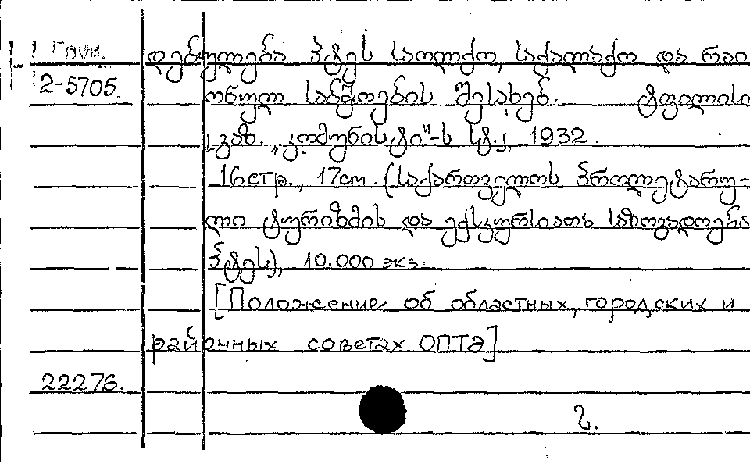 Груз. დებულება პტეს საოლქო, საქალაქო და რაი
2-5705. ონულ საბჭოების შესახებ. ტფილისი
გაზ. „კომუნისტი"-ს სტ., 1932.
16стр., 17см. (საქართველოს პროლეტარუ-
ლი ტურიზმის და ექსკურსიათა საზოგადოება
პტეს), 10.000 экз.
[Положение об областных, городских и
районных советах ОПТЭ]
22276.
2.